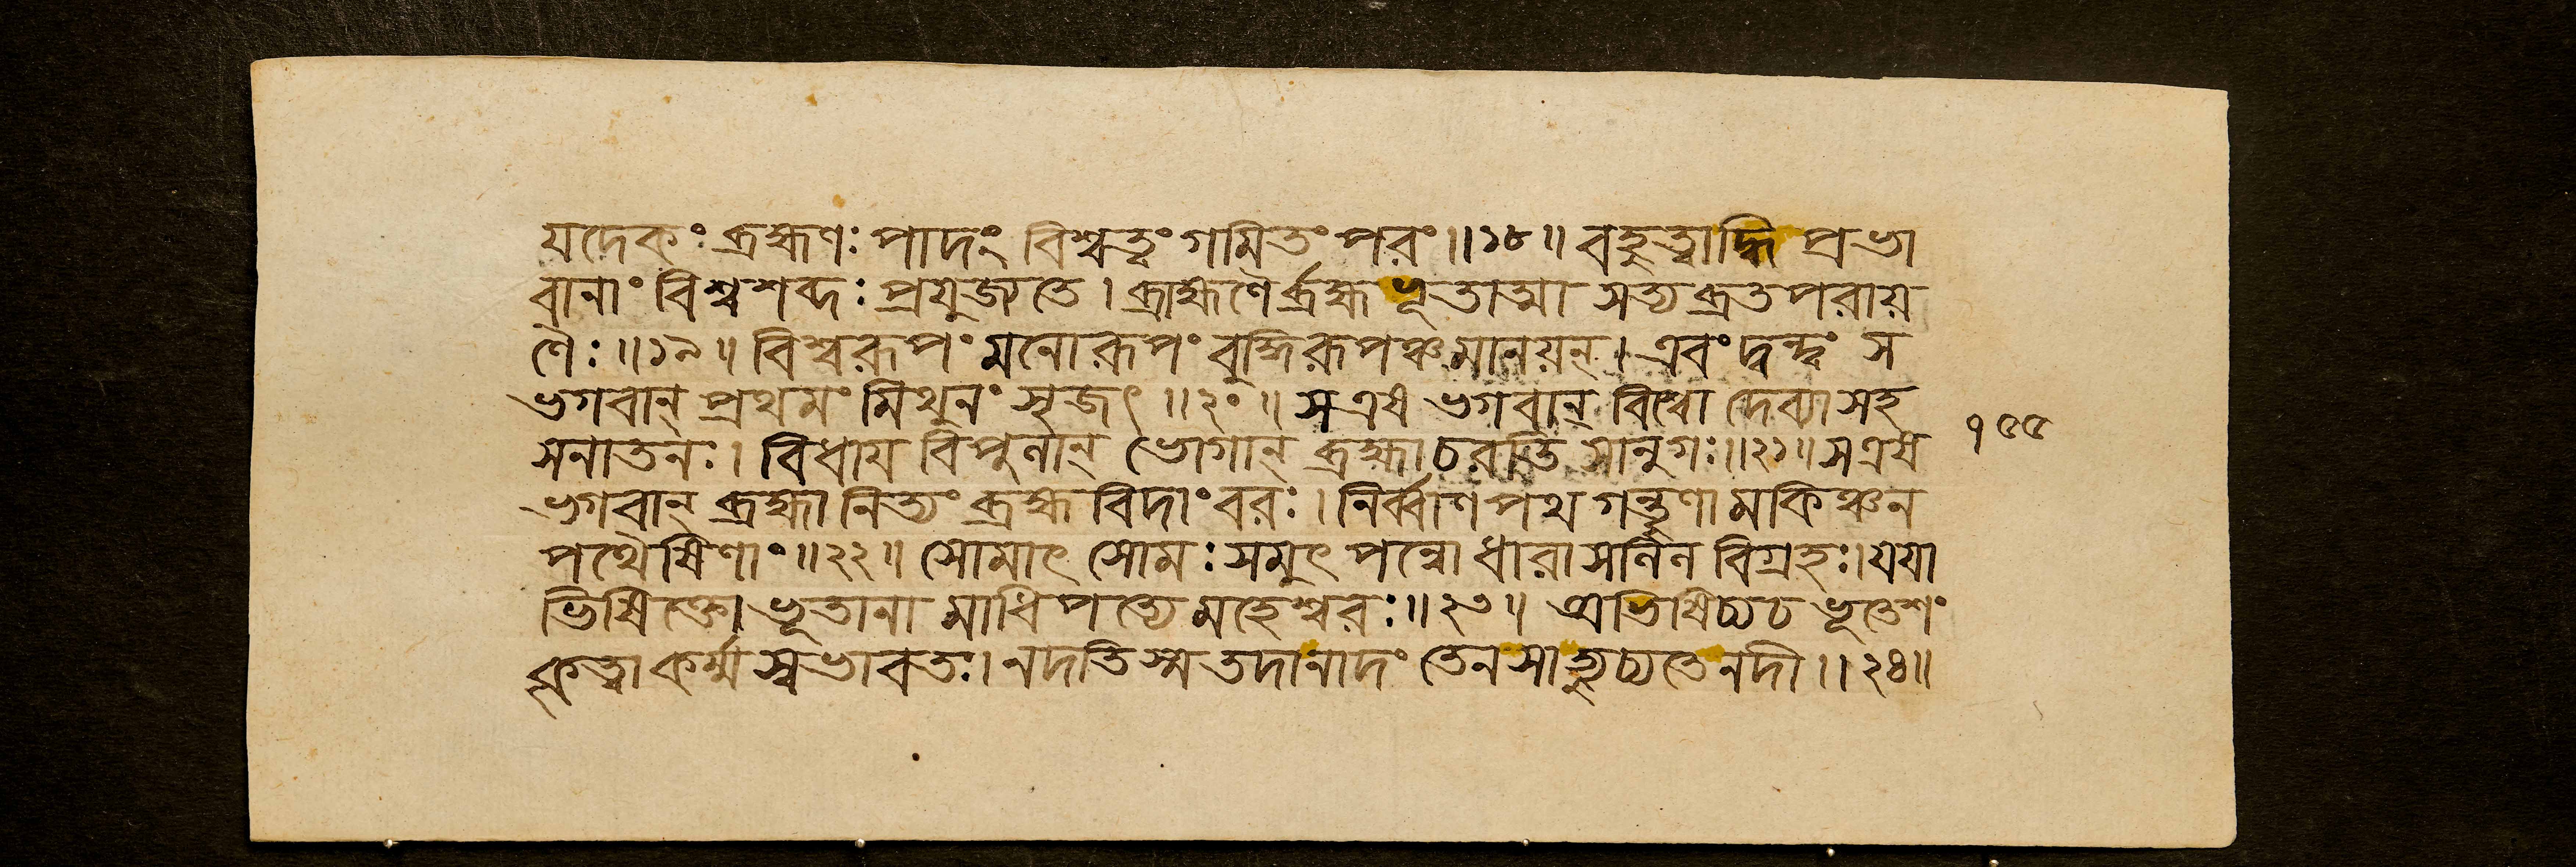 যদেকং ব্রহ্মণঃ পাদং বিশ্বত্বং গমিতং পরং ॥১৮॥ বহুত্বাদ্ধি প্রভা
বানাং বিশ্বশব্দঃ প্রযুজ্যতে । ব্রাহ্মণৈর্ব্রহ্মভূতাত্মা সত্যব্রতপরায়
ণৈঃ ॥১৯॥ বিশ্বরূপং মনোরূপং বুদ্ধিরূপঞ্চমানয়ন্ । এবং দ্বন্দ্বং স
ভগবান্ প্রথমং মিথুনং সৃজৎ ॥২০॥ সএষ ভগবান্ বিশ্বো দেব্যাসহ
সনাতনঃ । বিধায বিপুলান্ ভোগান্ ব্রহ্মাচরতি সানুগঃ ॥২১॥ সএষ
ভগবান্ ব্রহ্মা নিত্যং ব্রহ্মবিদাংবরঃ । নির্ব্বাণপথগন্তৄণামকিঞ্চন
পথৈষিণাং ॥২২॥ সোমাৎ সোমঃ সমুৎপন্নো ধারাসলিলবিগ্রহঃ । যযা
ভিষিক্তো ভূতানামাধিপত্যে মহেশ্বরঃ ॥২৩॥ অভিষিচ্যচ ভূতেশং
কৃত্বাকর্ম্ম স্বভাবতঃ । নদতিস্ম তদানাদং তেনসাহ্যুচ্যতেনদী ॥২৪॥
১৫৫